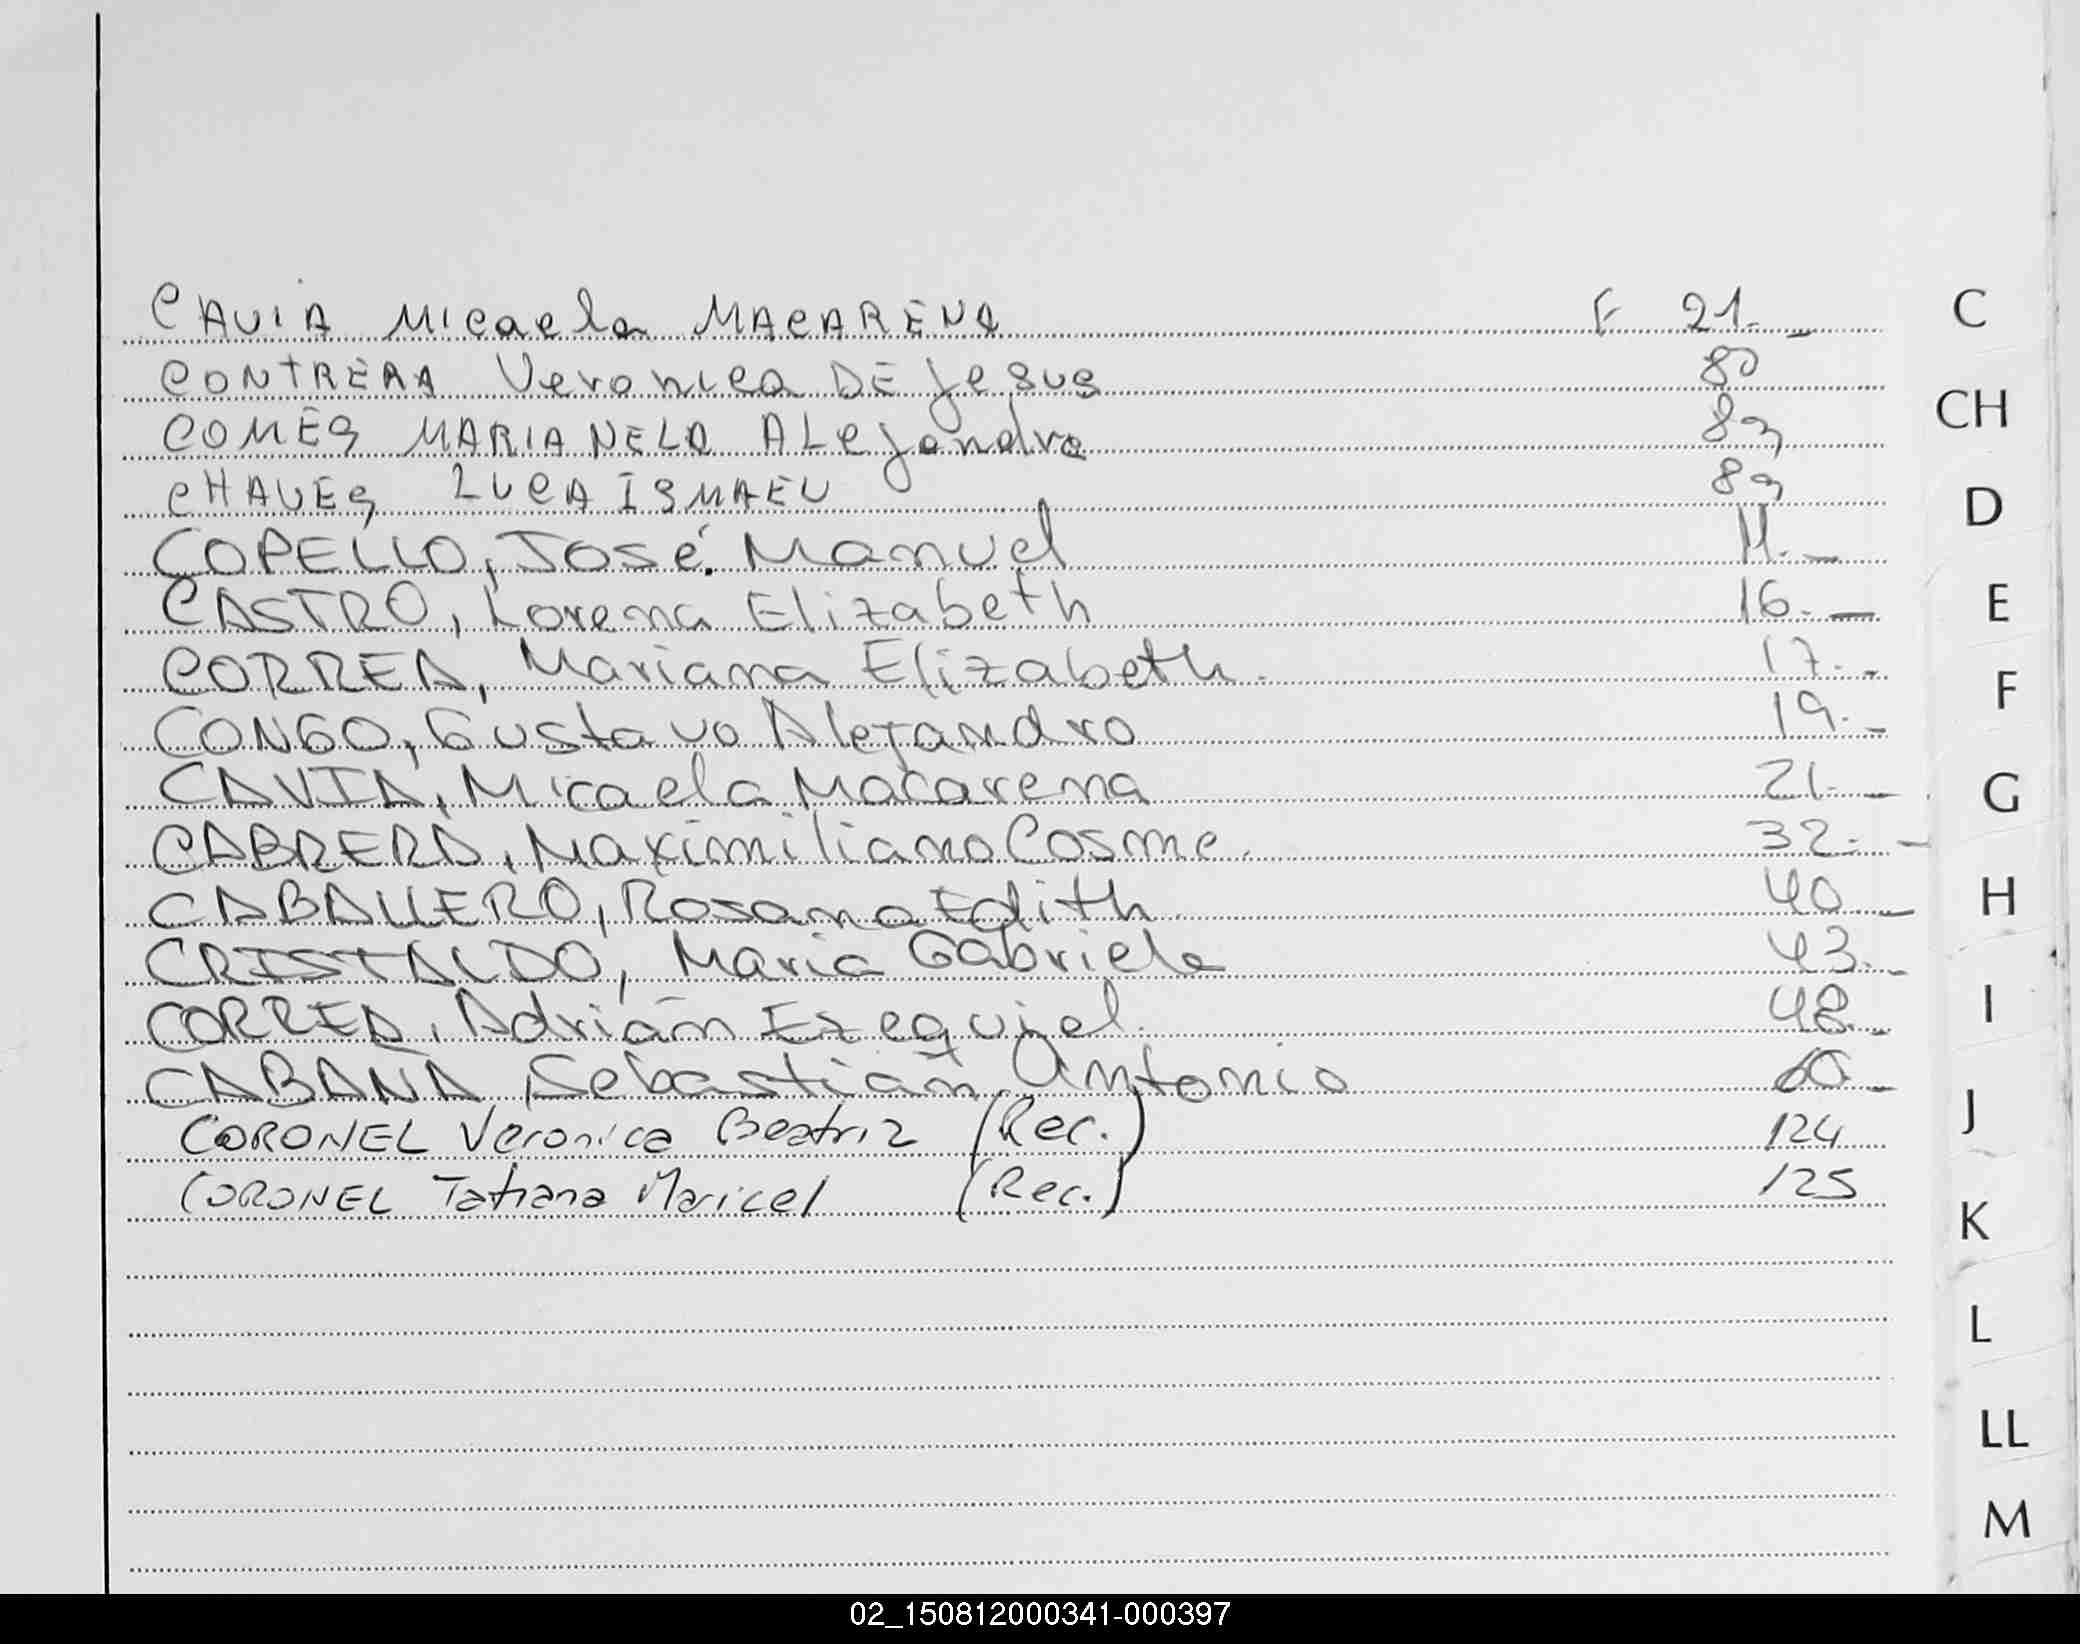 CAVIA Micaela MACARENA F 21.- C
CONTRERA Veronica DE Jesus 80
COMES MARIANELA ALejandra 89 CH
CHAVES LUCA ISMAEL 89 D
COPELLO, José Manuel 11.-
CASTRO, Lorena Elizabeth 16.- E
CORREA, Mariana Elizabeth. 17.- F
CONGO, Gustavo Alejandro 19.-
CAVIA, Micaela Macarena 21.- G
CABRERA, Maximiliano Cosme. 32.-
CABALLERO, Rosana Edith 40.- H
CRISTALDO, Maria Gabriela 43.-
CORREA, Adrián Ezequiel. 48.- I
CABAÑA, Sebastián Antonio 60.-
CORONEL Veronica Beatriz (Rec.) 124 J
CORONEL Tatiana Maricel (Rec.) 125
K
L
LL
M
02_150812000341-000397